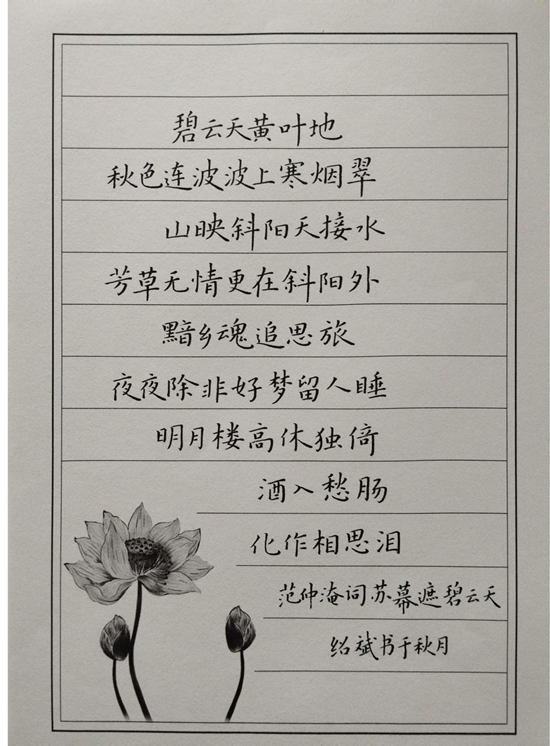 碧云天黄叶地
秋色连波波上寒烟翠
山映斜阳天接水
芳草无情更在斜阳外
黯乡魂追思旅
夜夜除非好梦留人睡
明月楼高休独倚
酒入愁肠
化作相思泪
范仲淹词苏幕遮碧云天
绍斌书于秋月